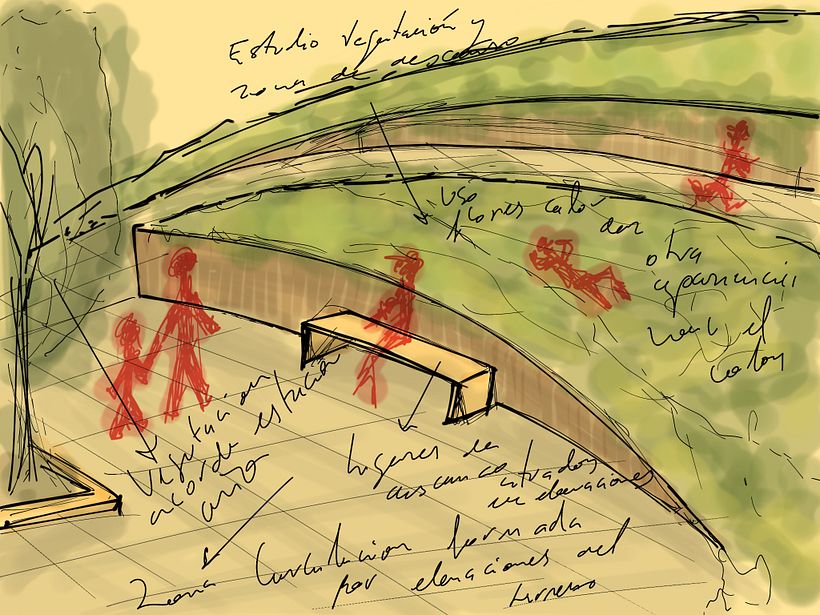 Estudio Vegetación y
zona de descanso
uso
flores color
dan
otra
apariencia
el
color
Vegetacion
acorde estación
año
lugares de
descanso situados
en elevaciones
Zona Circulacion formada
por elevaciones del
terreno